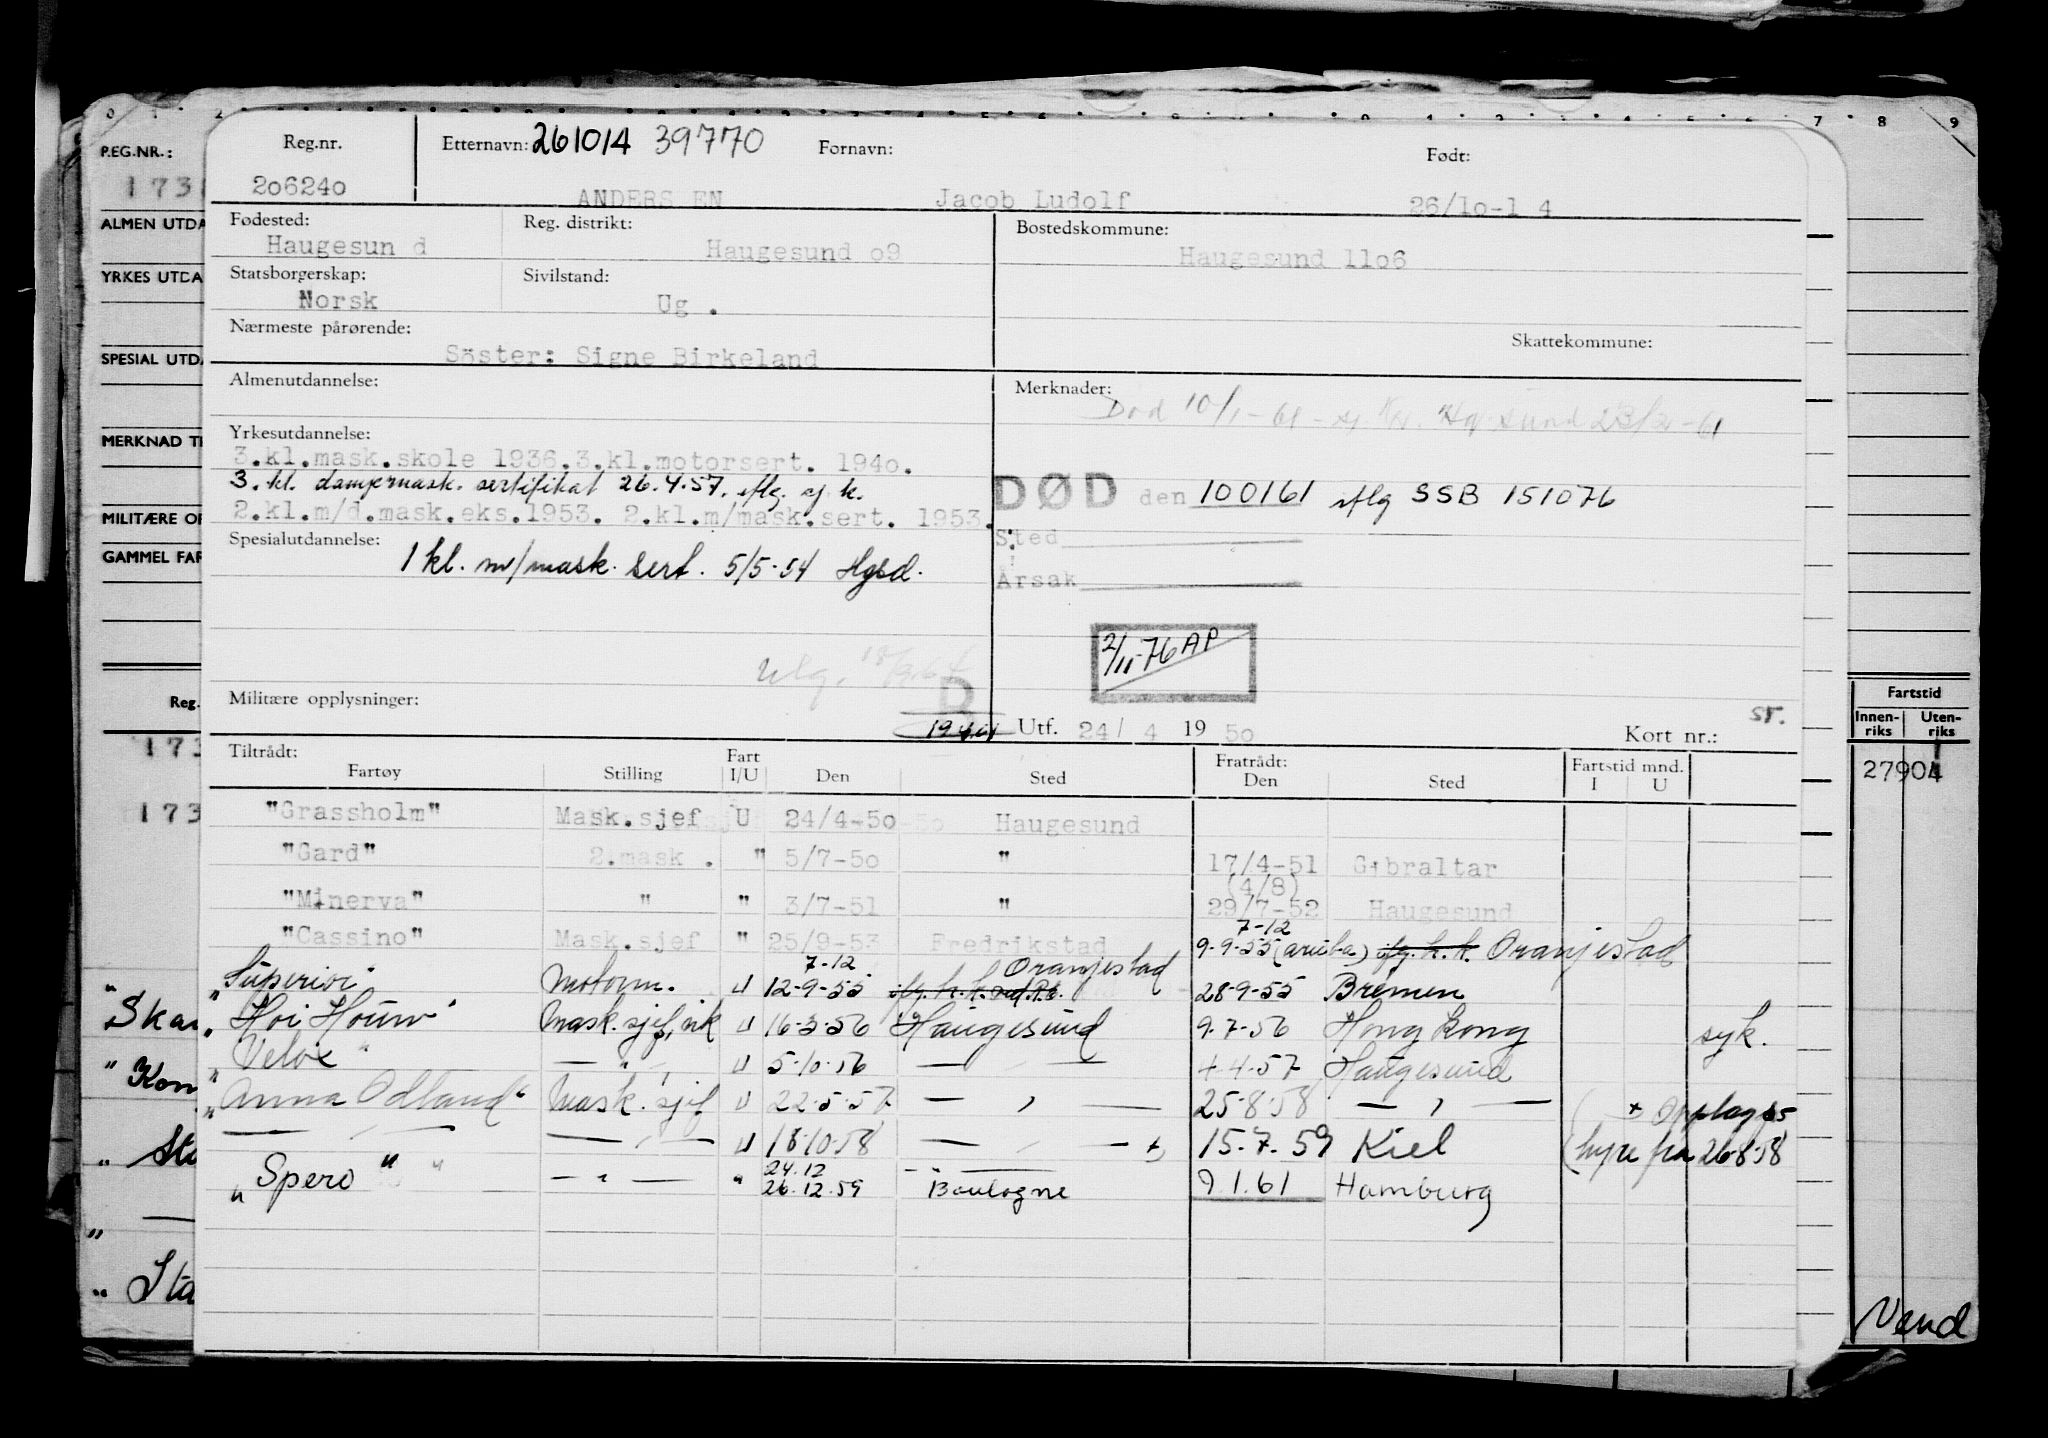 0 1 2 3 4 5 6 7 8 9
REG.NR.:
173
ALMEN UTDA
YRKES UTDA
SPESIAL UTDA
MERKNAD TI
MILITÆRE OP
GAMMEL FAR
Reg.
173
173
"Skar
"Kon
"Sta
"Sta
Reg.nr. Etternavn: 261014 39770 Fornavn: Født:
206240 ANDERS EN Jacob Ludolf 26/10-1 4
Fødested: Reg. distrikt: Bostedskommune:
Haugesun d Haugesund o9 Haugesund 11o6
Statsborgerskap: Sivilstand:
Norsk Ug .
Nærmeste pårørende: Skattekommune:
Söster: Signe Birkeland
Almenutdannelse: Merknader:
Død 10/1-61 - sj. Hgsund 23/2-61
Yrkesutdannelse:
3.kl.mask.skole 1936.3.kl.motorsert. 194o.
3. kl. dampmask. sertifikat 26.4.57. iflg. sj k.
2.kl.m/d.mask.eks.1953. 2.kl.m/mask.sert. 1953.
DØD den 100161 iflg SSB 151076
Sted
Årsak
Spesialutdannelse:
1 kl. m/mask. sert. 5/5-54 Hgsd.
2/11-76 AP
D
Militære opplysninger:
Utf. 24/ 4 19 5o Kort nr.:
Tiltrådt: Fart Fratrådt: Fartstid mnd.
Fartøy Stilling I/U Den Sted Den Sted I U
"Grassholm" Mask.sjef U 24/4-5o Haugesund
"Gard" 2.mask . " 5/7-5o " 17/4-51 Gibraltar
(4/8)
"Minerva" " " 3/7-51 " 29/7-52 Haugesund
7-12
"Cassino" Mask.sjef " 25/9-53 Fredrikstad 9-9-55 (aruba) Oranjestad
7-12 Oranjestad
"Superior" Motorm. U 12-9-55 28-9-55 Bremen
"Hoi Houw" Mask.sjef, vik U 16-3-56 Haugesund 9-7-56 Hong Kong syk.
"Velox" — " — U 5-10-56 — 4-57 Haugesund
"Anna Odland" Mask. sjef U 22-5-57 — " — 25-8-58 — " — + Opplags
— " — — " — U 18-10-58 — " — 15-7-59 Kiel hyre fra 26-8-58
24.12
"Spero" — " — " 26.12.59 Boulogne 9.1.61 Hamburg
Fartstid
Innen- Uten-
riks riks
27904
Vend